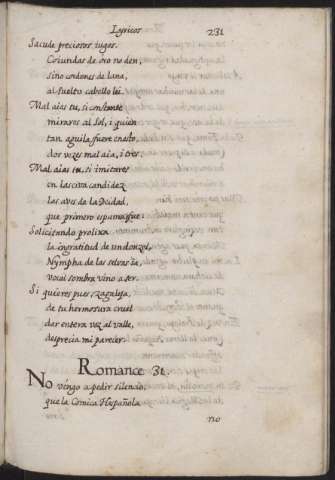 Lyricos 231
Sacude preciosos iugos.
Coiundas de oro no den,
Sino cordones de lana,
al suelto cabello lei.
Mal aias tu, si constante
mirares al Sol, i quien
tan aguila fuere en esto,
dos vezes mal aia, i tres
Mal aias tu, si imitares
en lasciva candidez
las aves de la Deidad,
que primero espuma fue:
Solicitando prolixa
la ingratitud de un donzel,
Nympha de las selvas ia,
vocal sombra vino a ser.
Si quieres pues, zagaleja,
de tu hermosura cruel
dar entera voz al valle,
desprecia mi parecer.
Romance 31.
No vengo a pedir silencio,
que la Comica Hespañola
no